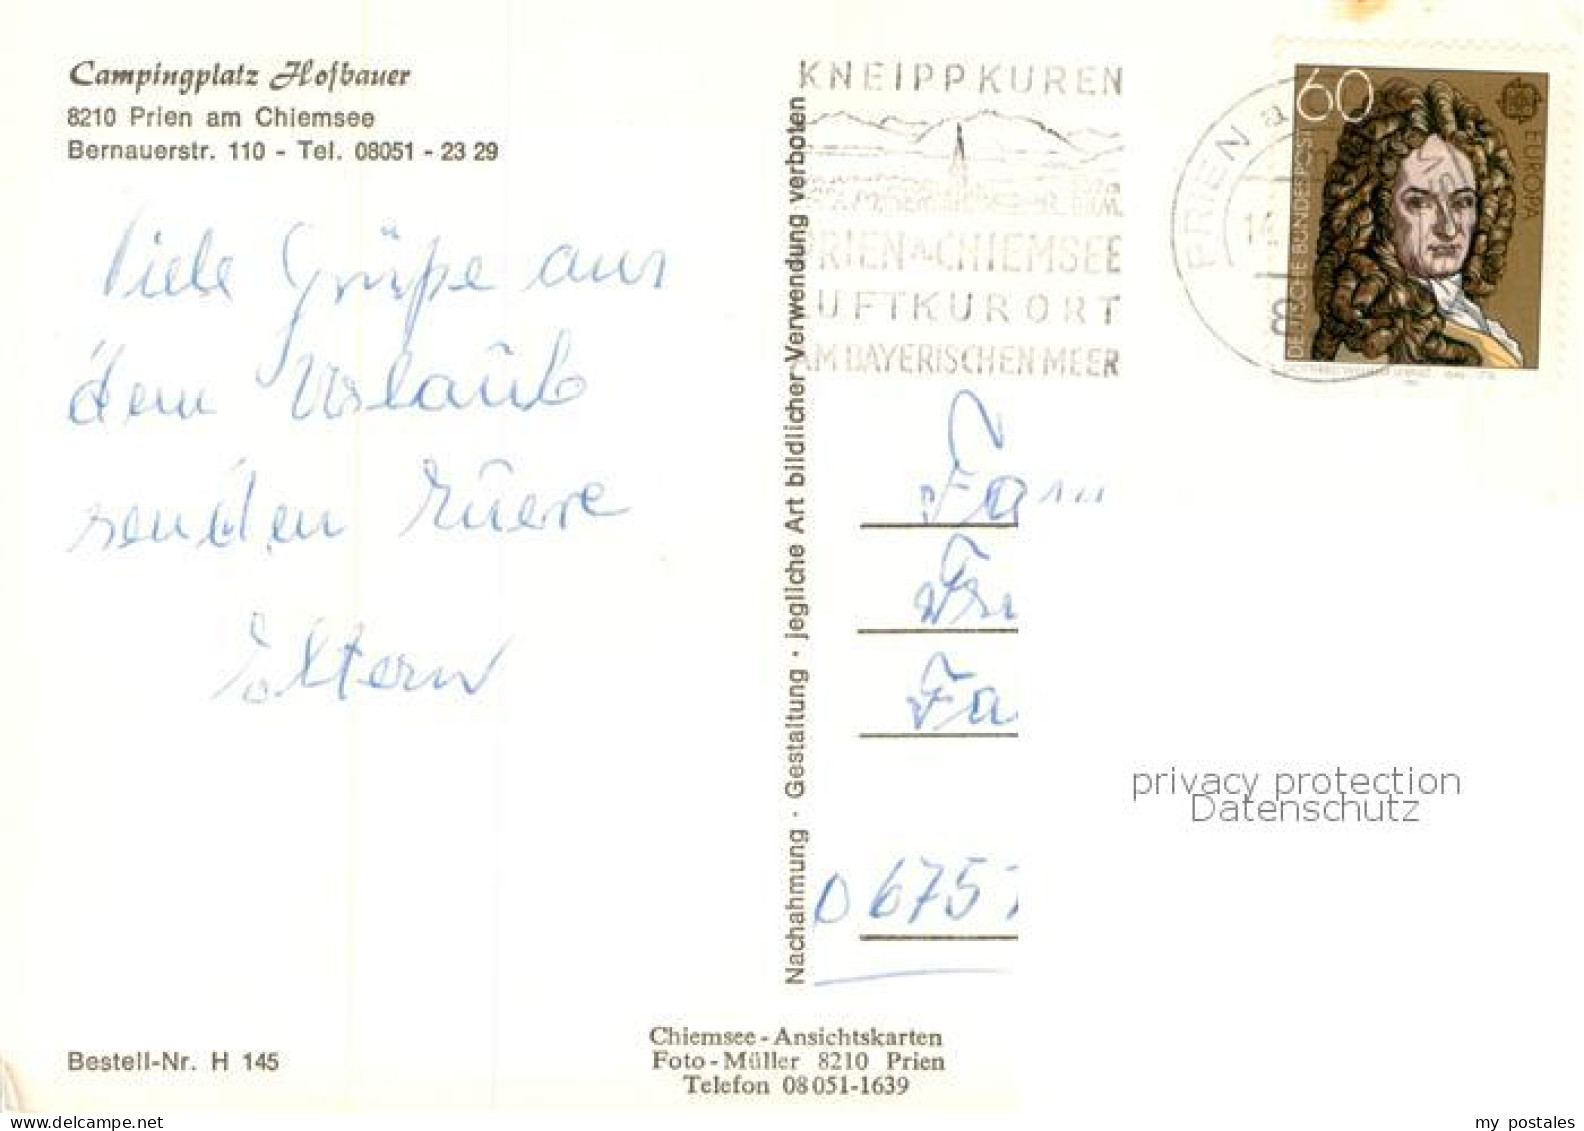 Campingplatz Hofbauer
8210 Prien am Chiemsee
Bernauerstr. 110 - Tel. 08051 - 23 29
Viele Grüße aus
dem Urlaub
senden Euere
Eltern
Bestell-Nr. H 145
Nachahmung · Gestaltung · jegliche Art bildlicher Verwendung verboten
Chiemsee-Ansichtskarten
Foto-Müller 8210 Prien
Telefon 08051-1639
KNEIPPKUREN
PRIEN A. CHIEMSEE
LUFTKURORT
AM BAYERISCHEN MEER
PRIEN a
60
EUROPA
DEUTSCHE BUNDESPOST
Fam
Fri
Fa
D 6757
privacy protection
Datenschutz
my postales